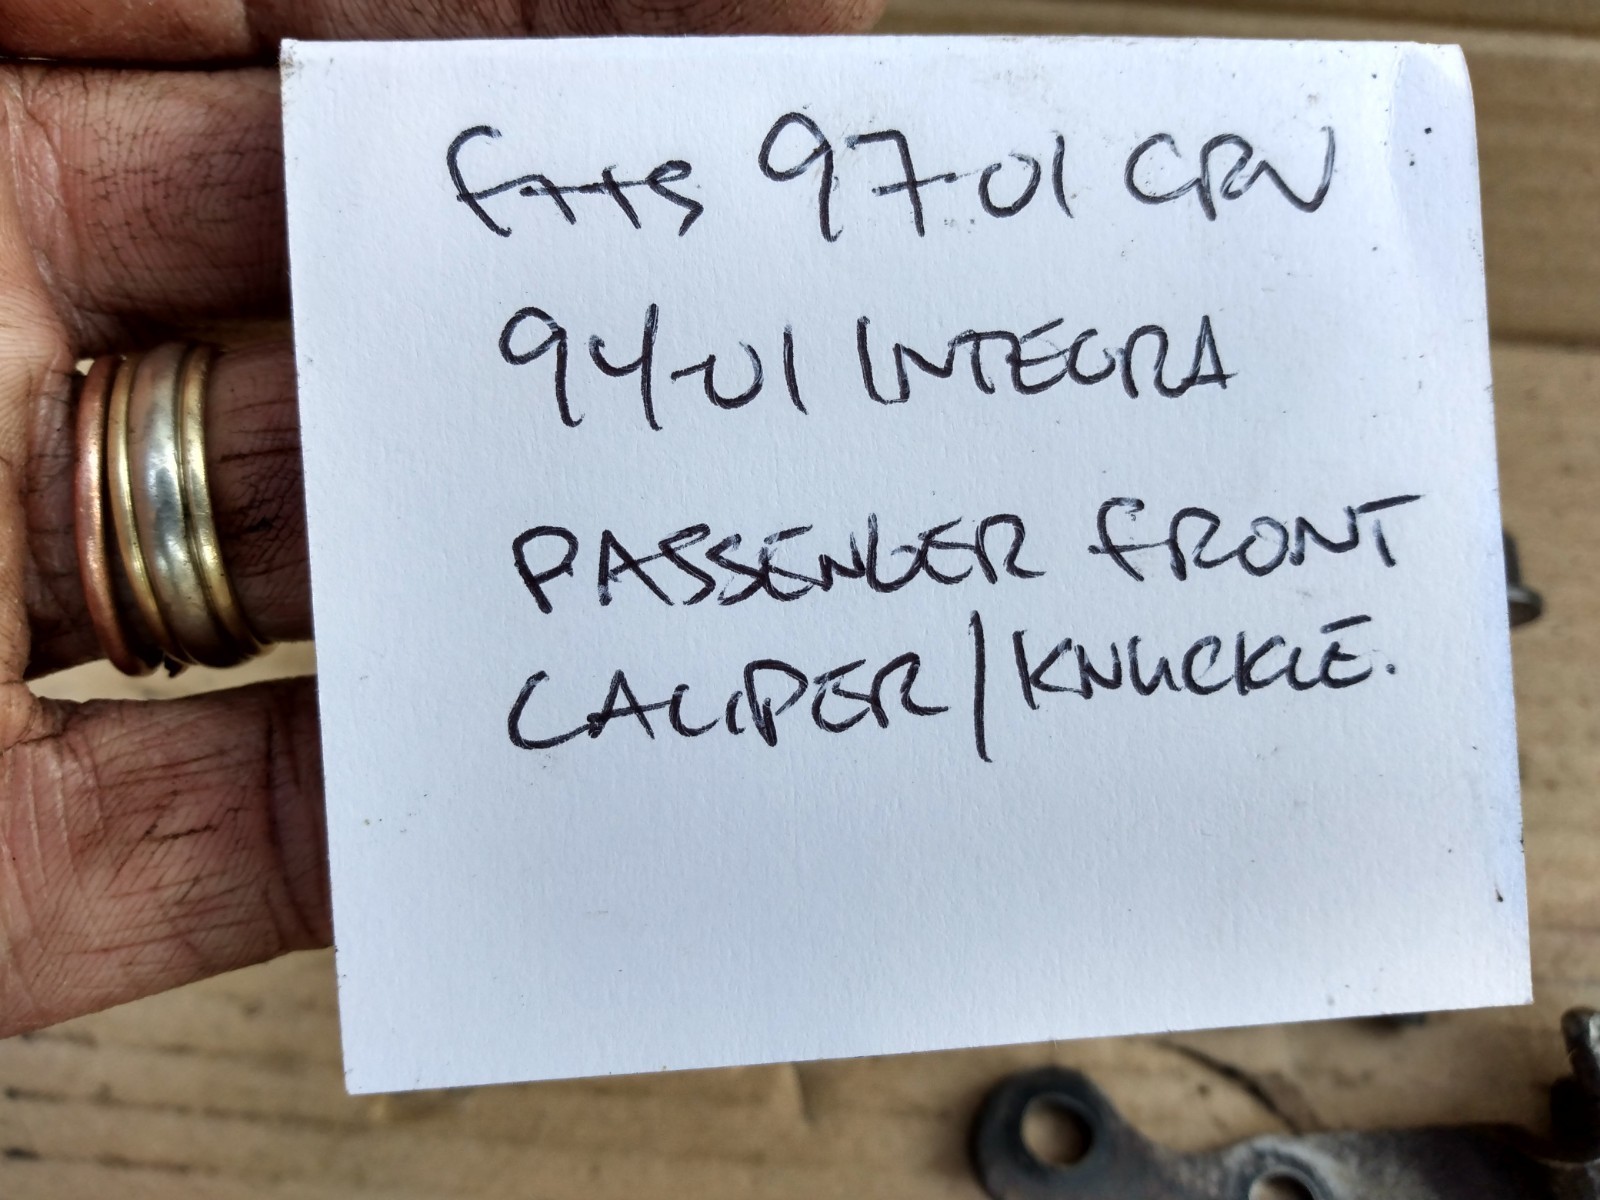 FITS 97-01 CRV
94-01 INTEGRA
PASSENGER FRONT
CALIPER/KNUCKLE.